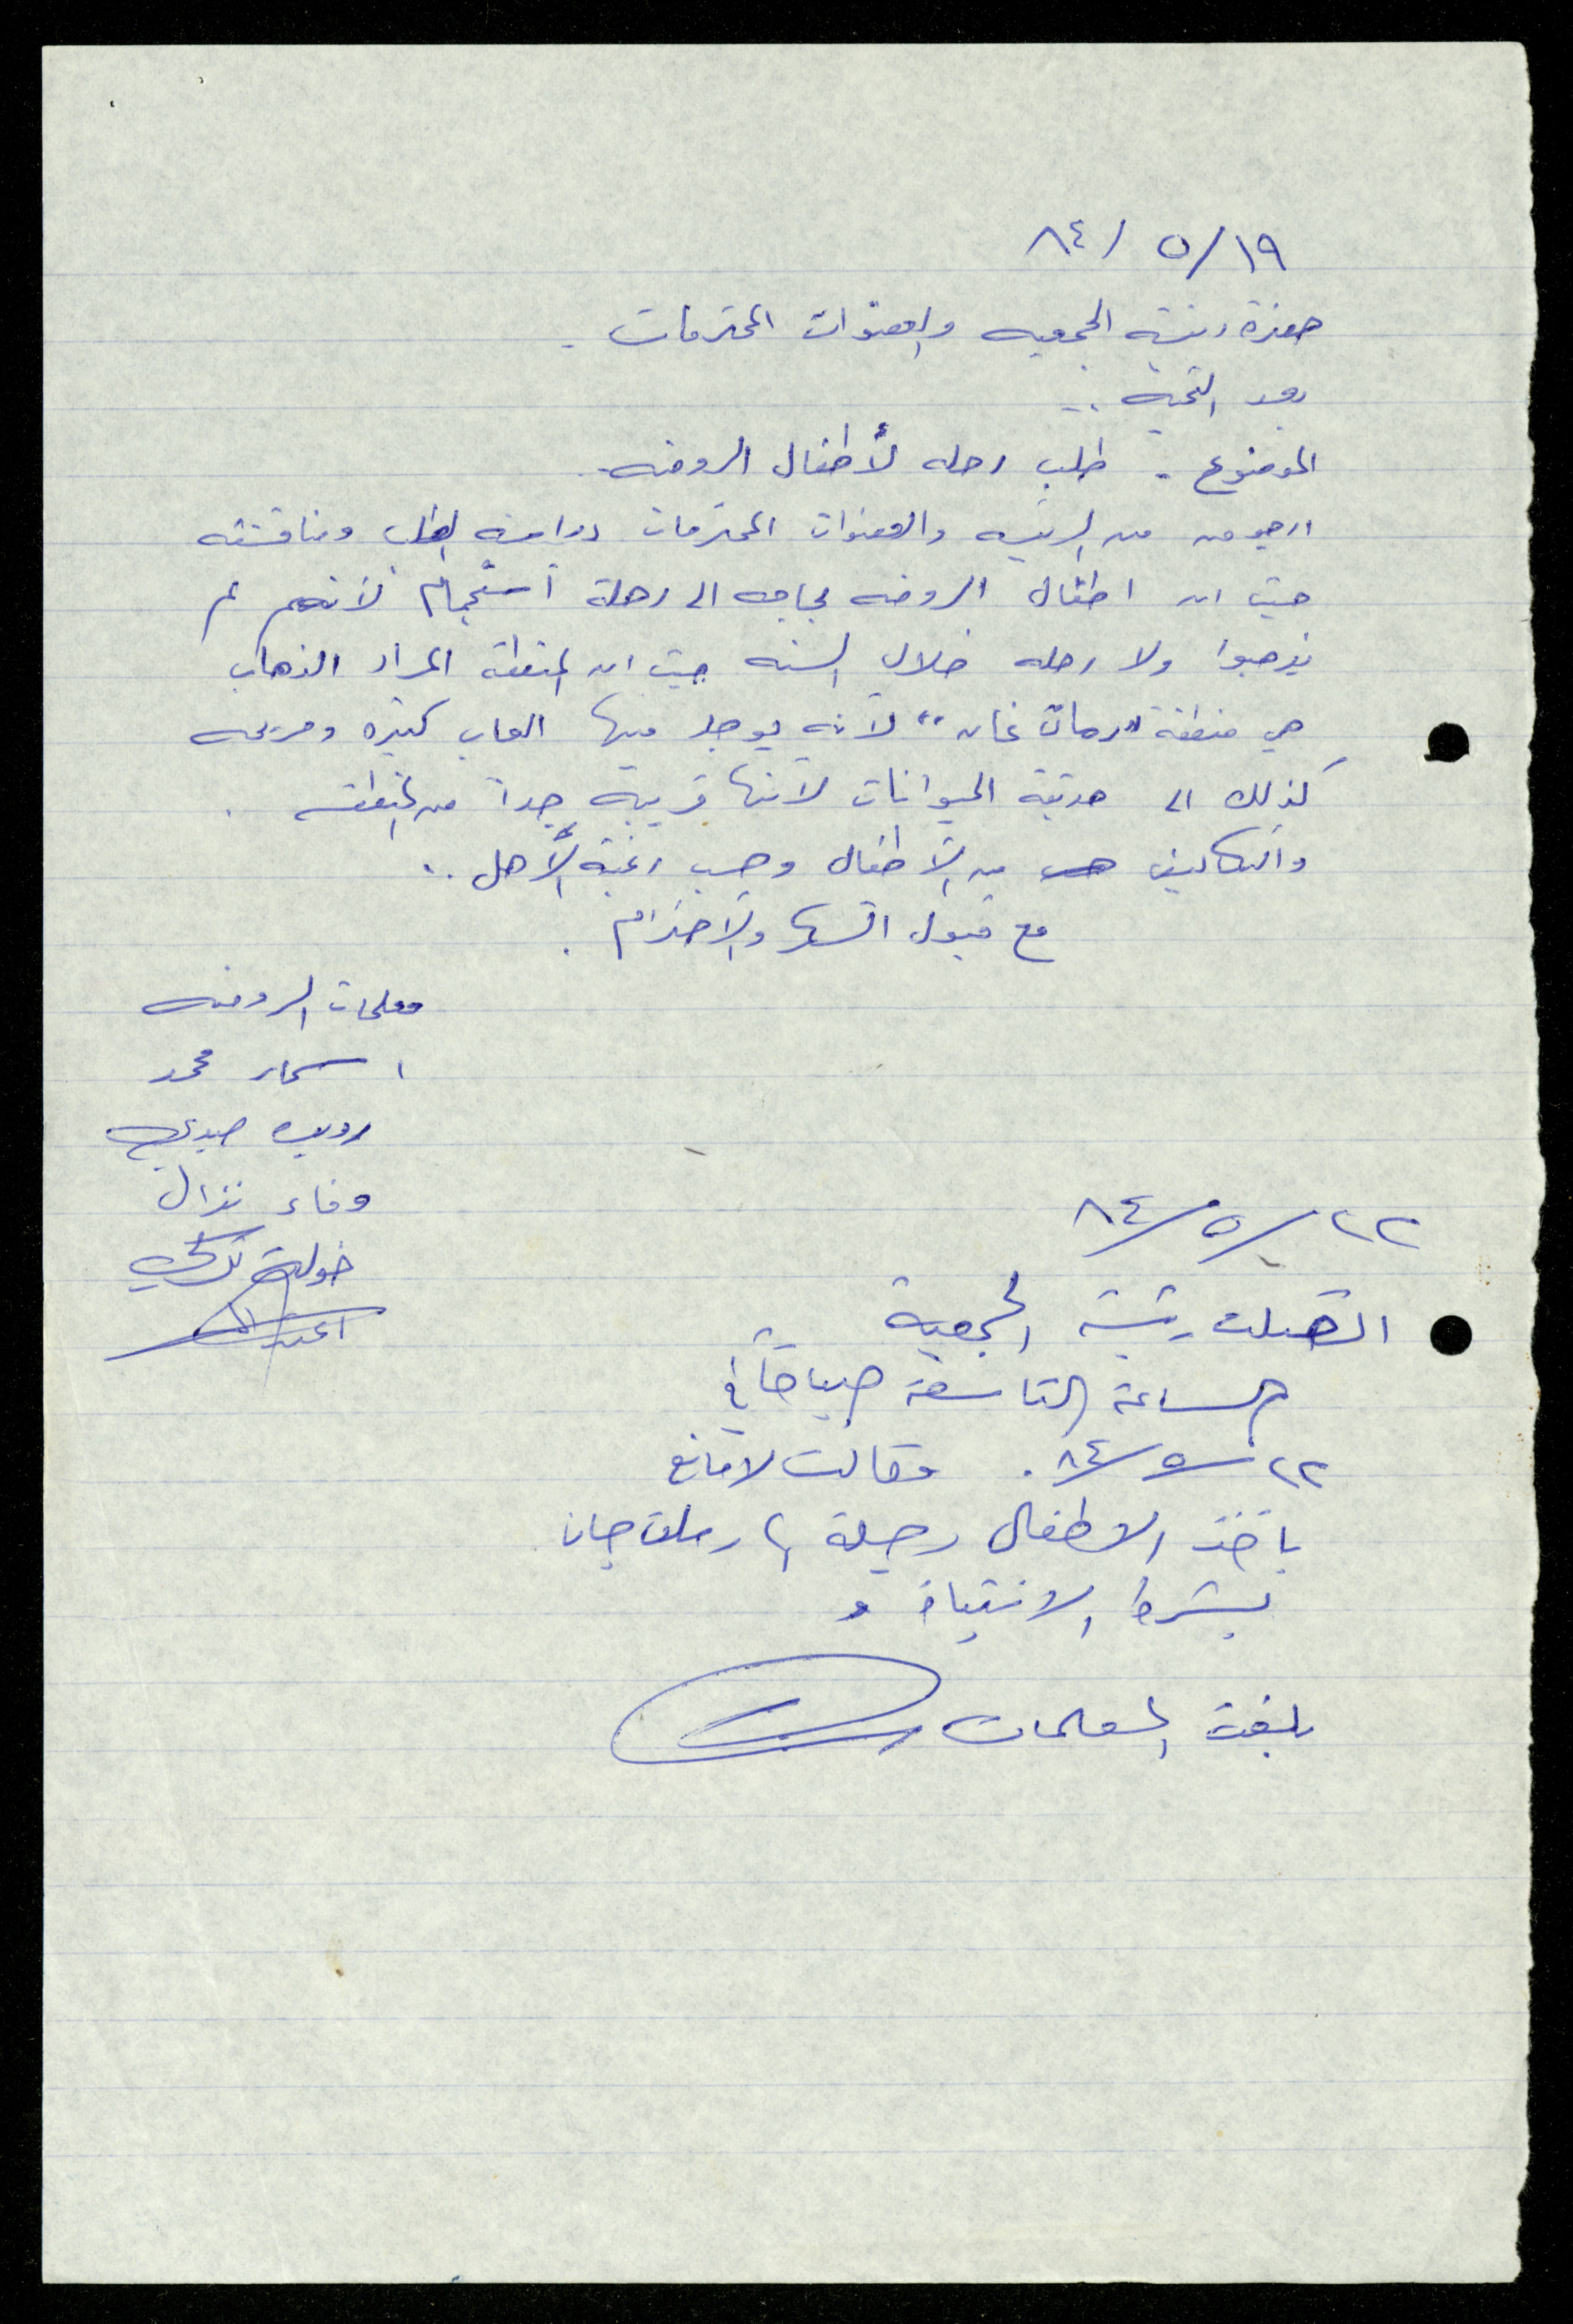 ١٩/ ٥/ ٨٤
حضرة رئيسة الجمعيه والعضوات المحترمات .
بعد التحيه ..
الموضوع . طلب رحله لأطفال الروضه .
ارجو من الرئيسه والعضوات المحترمات دراسة الطلب ومناقشته
حيث ان اطفال الروضه بحاجه الى رحلة استجمام لأنهم لم
يذهبوا ولا رحله خلال السنه حيث ان المنطقة المراد الذهاب
هي منطقة "رمات غان" لأنه يوجد فيها العاب كثيره ومريحه
كذلك الى حديقة الحيوانات لأنها قريبه جداً من المنطقه .
والتكاليف من الأطفال وحسب رغبة الأهل ..
مع قبول الشكر والاحترام .
معلمات الروضه
اسمهار محمد
صبدي
وفاء نزال
خولة تركي
٢٢/ ٥/ ٨٤
اتصلت رئيسة الجمعية
الساعة التاسعة صباحاً في
٢٢/ ٥/ ٨٤ . وقالت لا مانع
بأخذ الاطفال رحلة الى رمات جان
بشرط الانتباه و
بلغت المعلمات